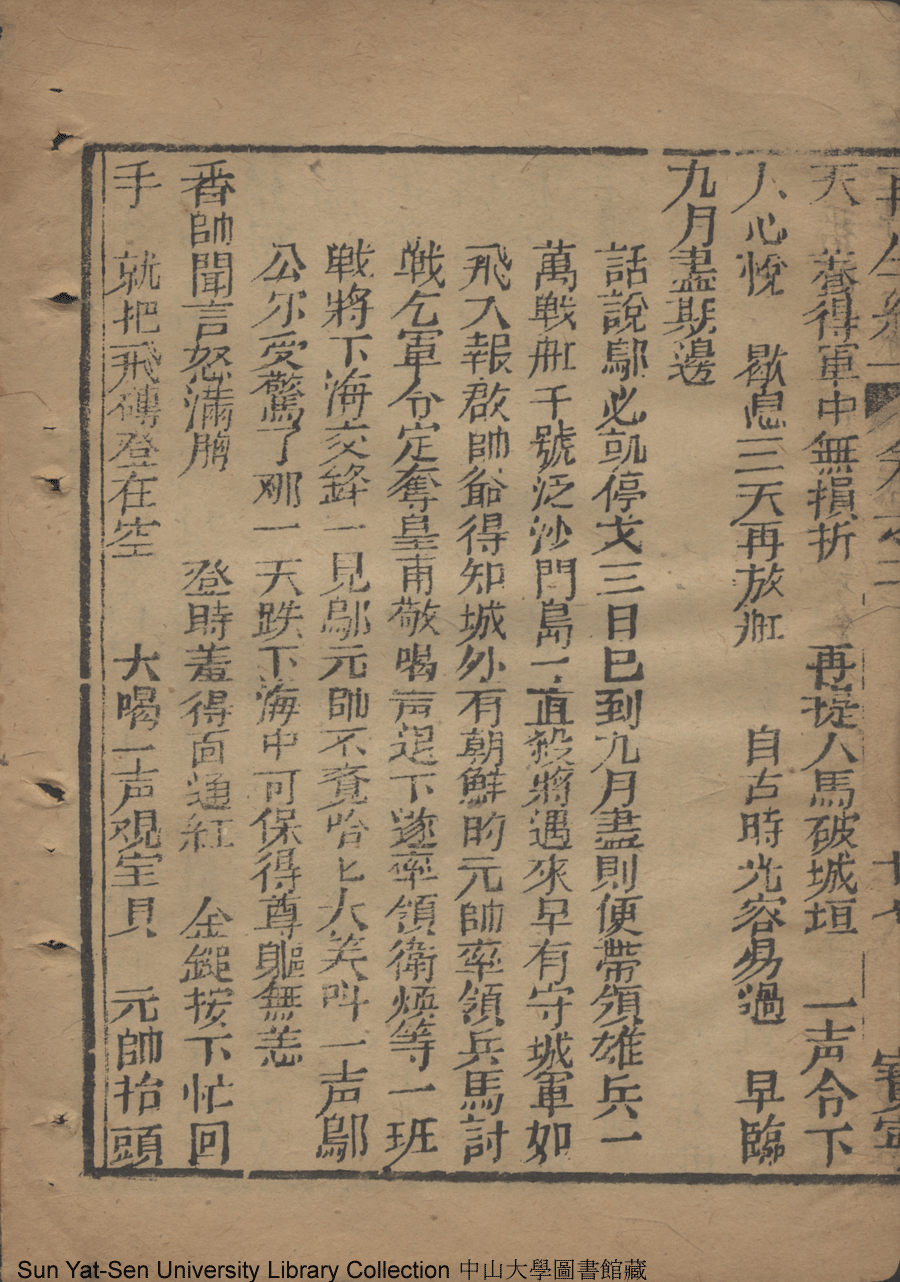 天　養得軍中無損折　再提人馬破城垣　一声令下
人心悅　歇息三天再放舡　自古時光容易過　早臨
九月盡期邊
話說鄔必凱停戈三日已到九月盡則便帶領雄兵一
萬戰舡千號泛沙門島一直殺將過來早有守城軍如
飛入報啟帥爺得知城外有朝鮮的元帥率領兵馬討
戰乞軍令定奪皇甫敬喝声退下遂率領衛煥等一班
戰將下海交鋒一見鄔元帥不覔哈匕大笑呌一声鄔
公尔受驚了那一天跌下海中可保得尊軀無恙
番帥聞言怒滿胸　登時羞得面通紅　金鎚按下忙回
手　就把飛磚登在空　大喝一声观宝貝　元帥抬頭
Sun Yat-Sen University Library Collection 中山大學圖書館藏